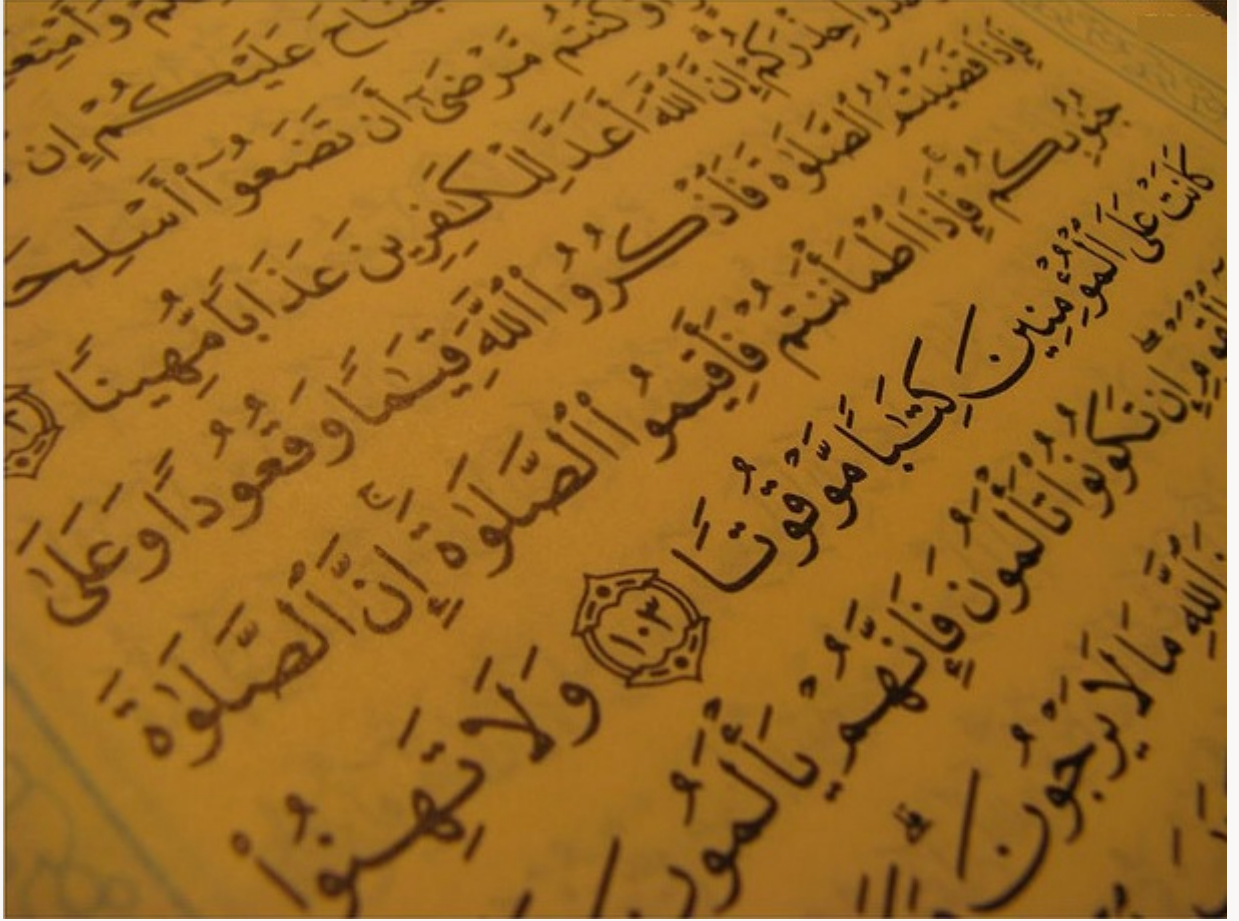 جُنَاحَ عَلَيْكُمْ إِن
كُنتُم مَّرْضَىٰٓ أَن تَضَعُوٓا۟ أَسْلِحَ
حِذْرَكُمْ إِنَّ ٱللَّهَ أَعَدَّ لِلْكَٰفِرِينَ عَذَابًا مُّهِينًا
فَإِذَا قَضَيْتُمُ ٱلصَّلَوٰةَ فَٱذْكُرُوا۟ ٱللَّهَ قِيَٰمًا وَقُعُودًا وَعَلَىٰ
جُنُوبِكُمْ فَإِذَا ٱطْمَأْنَنتُمْ فَأَقِيمُوا۟ ٱلصَّلَوٰةَ إِنَّ ٱلصَّلَوٰةَ
كَانَتْ عَلَى ٱلْمُؤْمِنِينَ كِتَٰبًا مَّوْقُوتًا ١٠٣ وَلَا تَهِنُوا۟
ٱلْقَوْمِ إِن تَكُونُوا۟ تَأْلَمُونَ فَإِنَّهُمْ يَأْلَمُونَ
ٱللَّهِ مَا لَا يَرْجُونَ